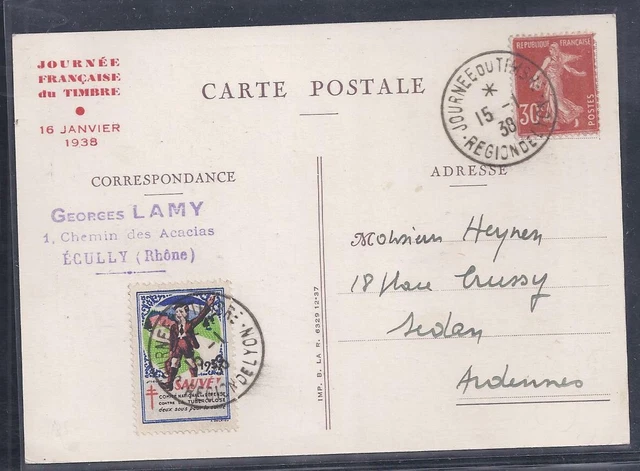 JOURNÉE
FRANÇAISE
du TIMBRE
16 JANVIER
1938
CARTE POSTALE
JOURNEE DU
15
38
REGION DE LY
REPUBLIQUE FRANÇAISE
30
POSTES
CORRESPONDANCE
ADRESSE
GEORGES LAMY
1, Chemin des Acacias
ÉCULLY (Rhône)
Monsieur Heynen
18 Place Crussy
Sedan
Ardennes
1937
SAUVE!
COMITÉ NATIONAL DE DÉFENSE
CONTRE LA TUBERCULOSE
deux sous pour la santé
REGION DE LY
IMP. B. LA R. 6329 12-37